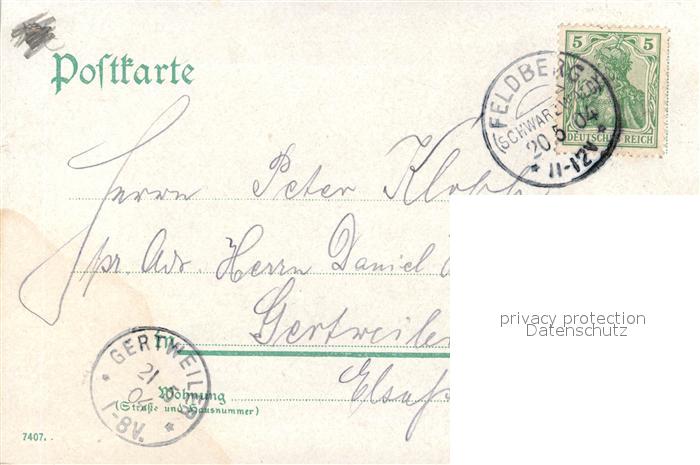 Postkarte
5 5
DEUTSCHES REICH
FELDBERG
(SCHWARZWALD)
20.5.04
* 11-12V *
Herrn Peter
pr. Adr. Herrn Daniel
Gertweiler
Elsaß
GERTWEILER
21
5
04
7-8V.
Wohnung
(Straße und Hausnummer)
7407.
privacy protection
Datenschutz